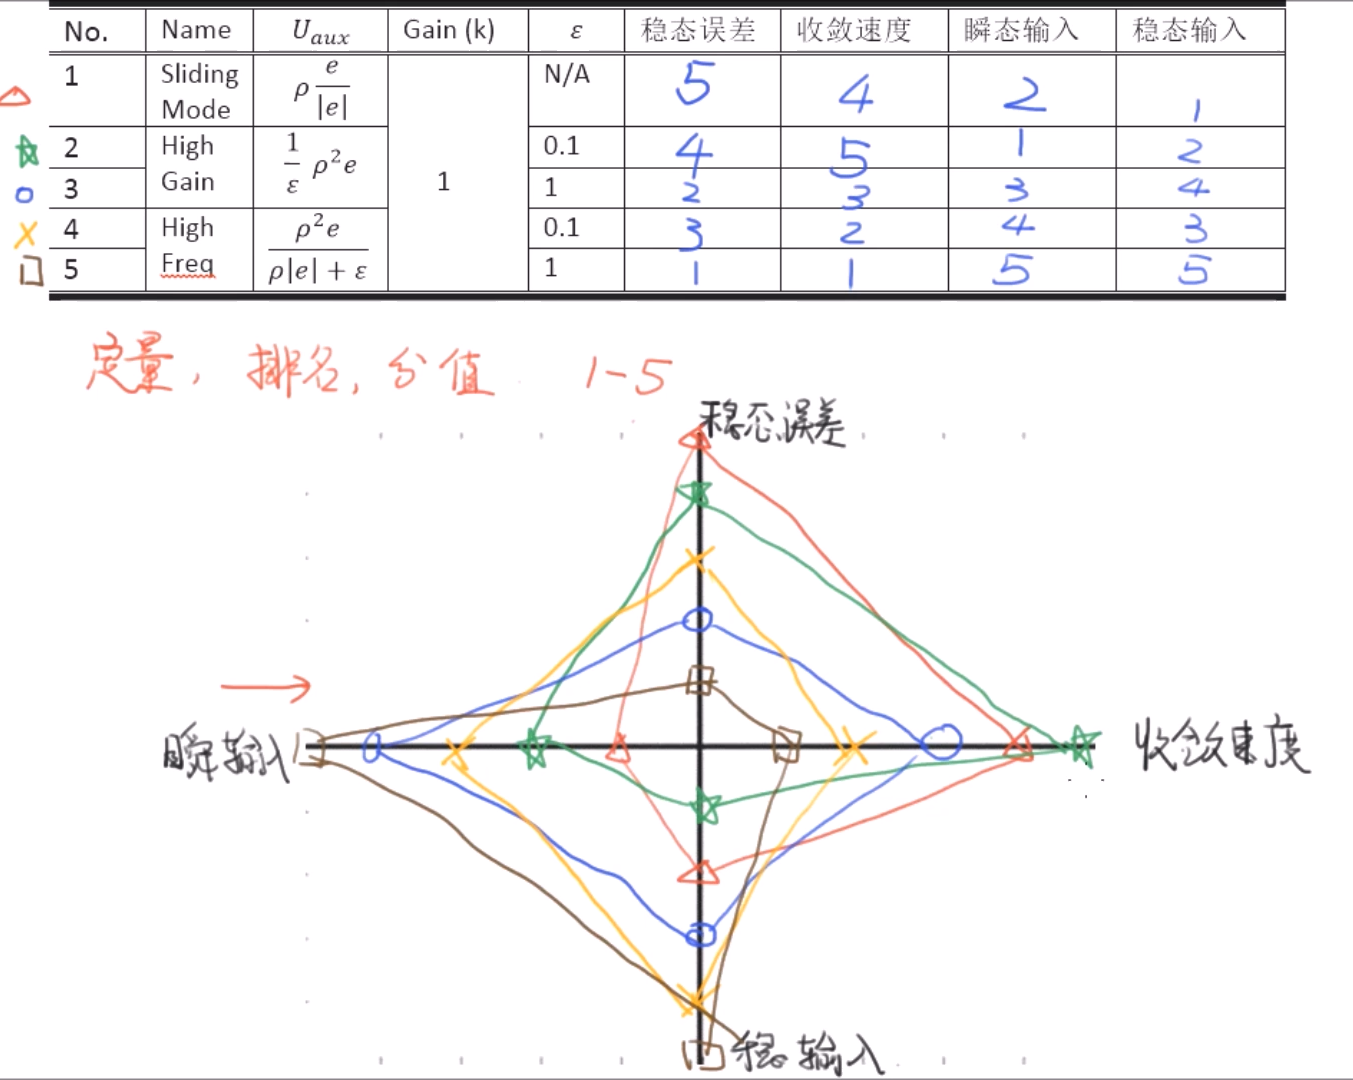 No. Name U_aux Gain (k) ε 稳态误差 收敛速度 瞬态输入 稳态输入
1 Sliding Mode ρ e/|e| 1 N/A 5 4 2 1
2 High Gain 1/ε ρ²e 0.1 4 5 1 2
3 1 2 3 3 4
4 High Freq ρ²e/(ρ|e| + ε) 0.1 3 2 4 3
5 1 1 1 5 5
定量, 排名, 分值 1-5
稳态误差
瞬输入
收敛速度
稳输入